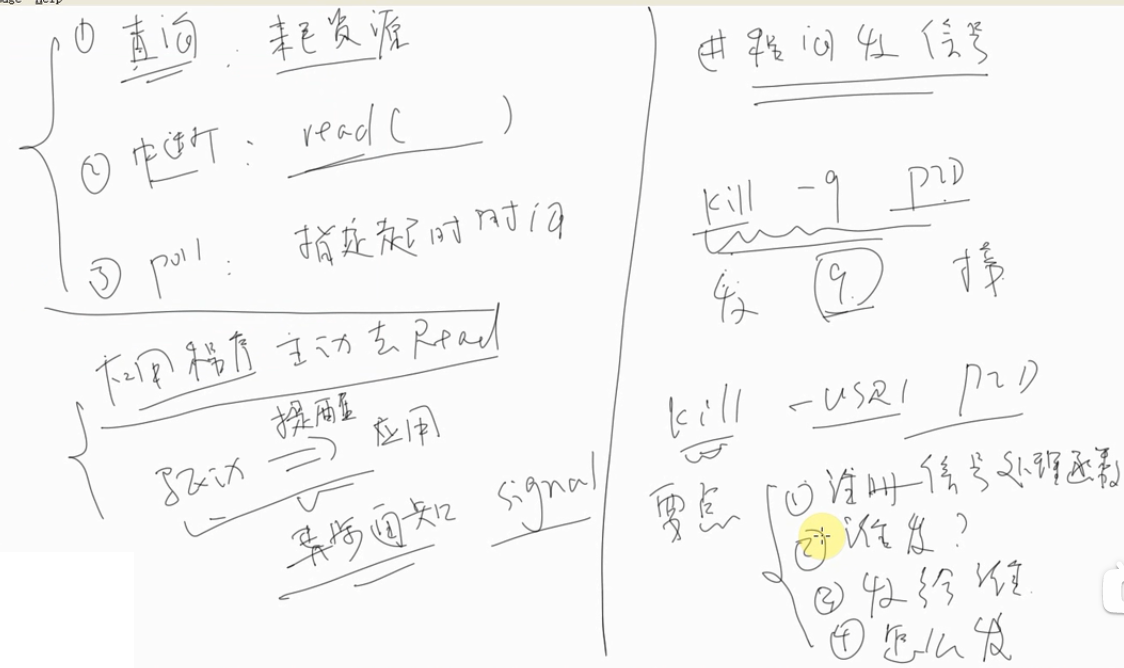 ① 查询: 耗资源
② 中断: read( )
③ poll: 指定超时时间
应用程序 主动去Read
驱动 ⇒ 提醒 应用
异步通知 signal
进程间发信号
kill -9 PID
发 9
kill -USR1 PID
要点 ① 注册信号处理函数
② 谁发?
③ 发给谁
④ 怎么发